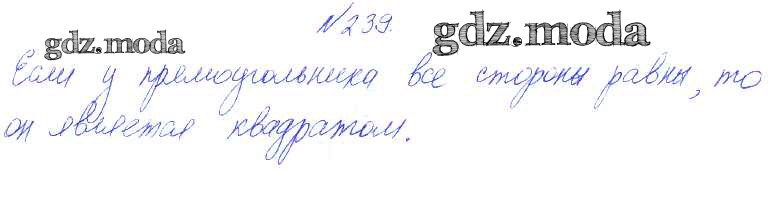 №239.
gdz.moda gdz.moda
Если у прямоугольника все стороны равны, то
он является квадратом.